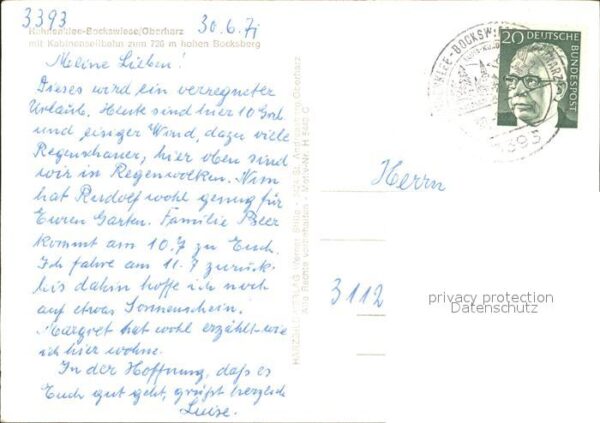 3393
30.6.71
Hahnenklee-Bockswiese/Oberharz
mit Kabinenseilbahn zum 726 m hohen Bocksberg
Meine Lieben!
Dieses wird ein verregneter
Urlaub. Heute sind hier 10 Grd
und eisiger Wind, dazu viele
Regenschauer, hier oben sind
wir in Regenwolken. Nun
hat Rudolf wohl genug für
Euren Garten. Familie Beer
kommt am 10.7 zu Euch.
Ich fahre am 11.7 zurück
bis dahin hoffe ich noch
auf etwas Sonnenschein.
Margret hat wohl erzählt wie
ich hier wohne.
In der Hoffnung, daß es
Euch gut geht, grüßt herzlich
Luise.
Alle Rechte vorbehalten
20 DEUTSCHE
BUNDESPOST
3393
Herrn
3112
privacy protection
Datenschutz